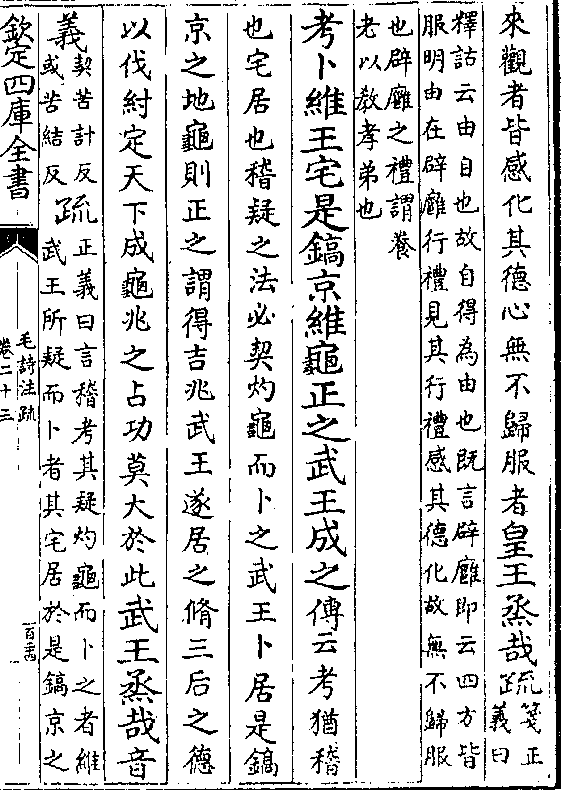 來觀者皆感化其德心無不歸服者皇王烝哉疏箋正義曰
釋詁云由自也故自得為由也既言辟廱即云四方皆
服明由在辟廱行禮見其行禮感其德化故無不歸服
也辟廱之禮謂養
老以教孝弟也
考卜維王宅是鎬京維龜正之武王成之傳云考猶稽
也宅居也稽疑之法必契灼龜而卜之武王卜居是鎬
京之地龜則正之謂得吉兆武王遂居之脩三后之德
以伐紂定天下成龜兆之占功莫大於此武王烝哉音
義契苦計反或苦結反疏正義曰言稽考其疑灼龜而卜之者維武王所疑而卜者其宅居於是鎬京之
欽定四庫全書
毛詩注疏
卷二十三